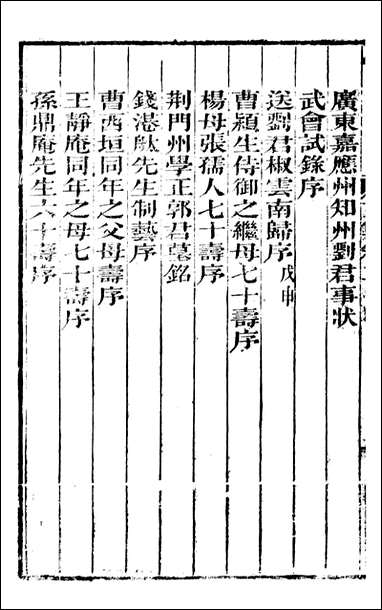 廣東嘉應州知州劉君事狀
武會試錄序
送劉君椒雲南歸序戊申
曹穎生侍御之繼母七十壽序
楊母張孺人七十壽序
荆門州學正郭君墓銘
錢港舲先生制藝序
曹西垣同年之父母壽序
王靜庵同年之母七十壽序
孫鼎庵先生六十壽序